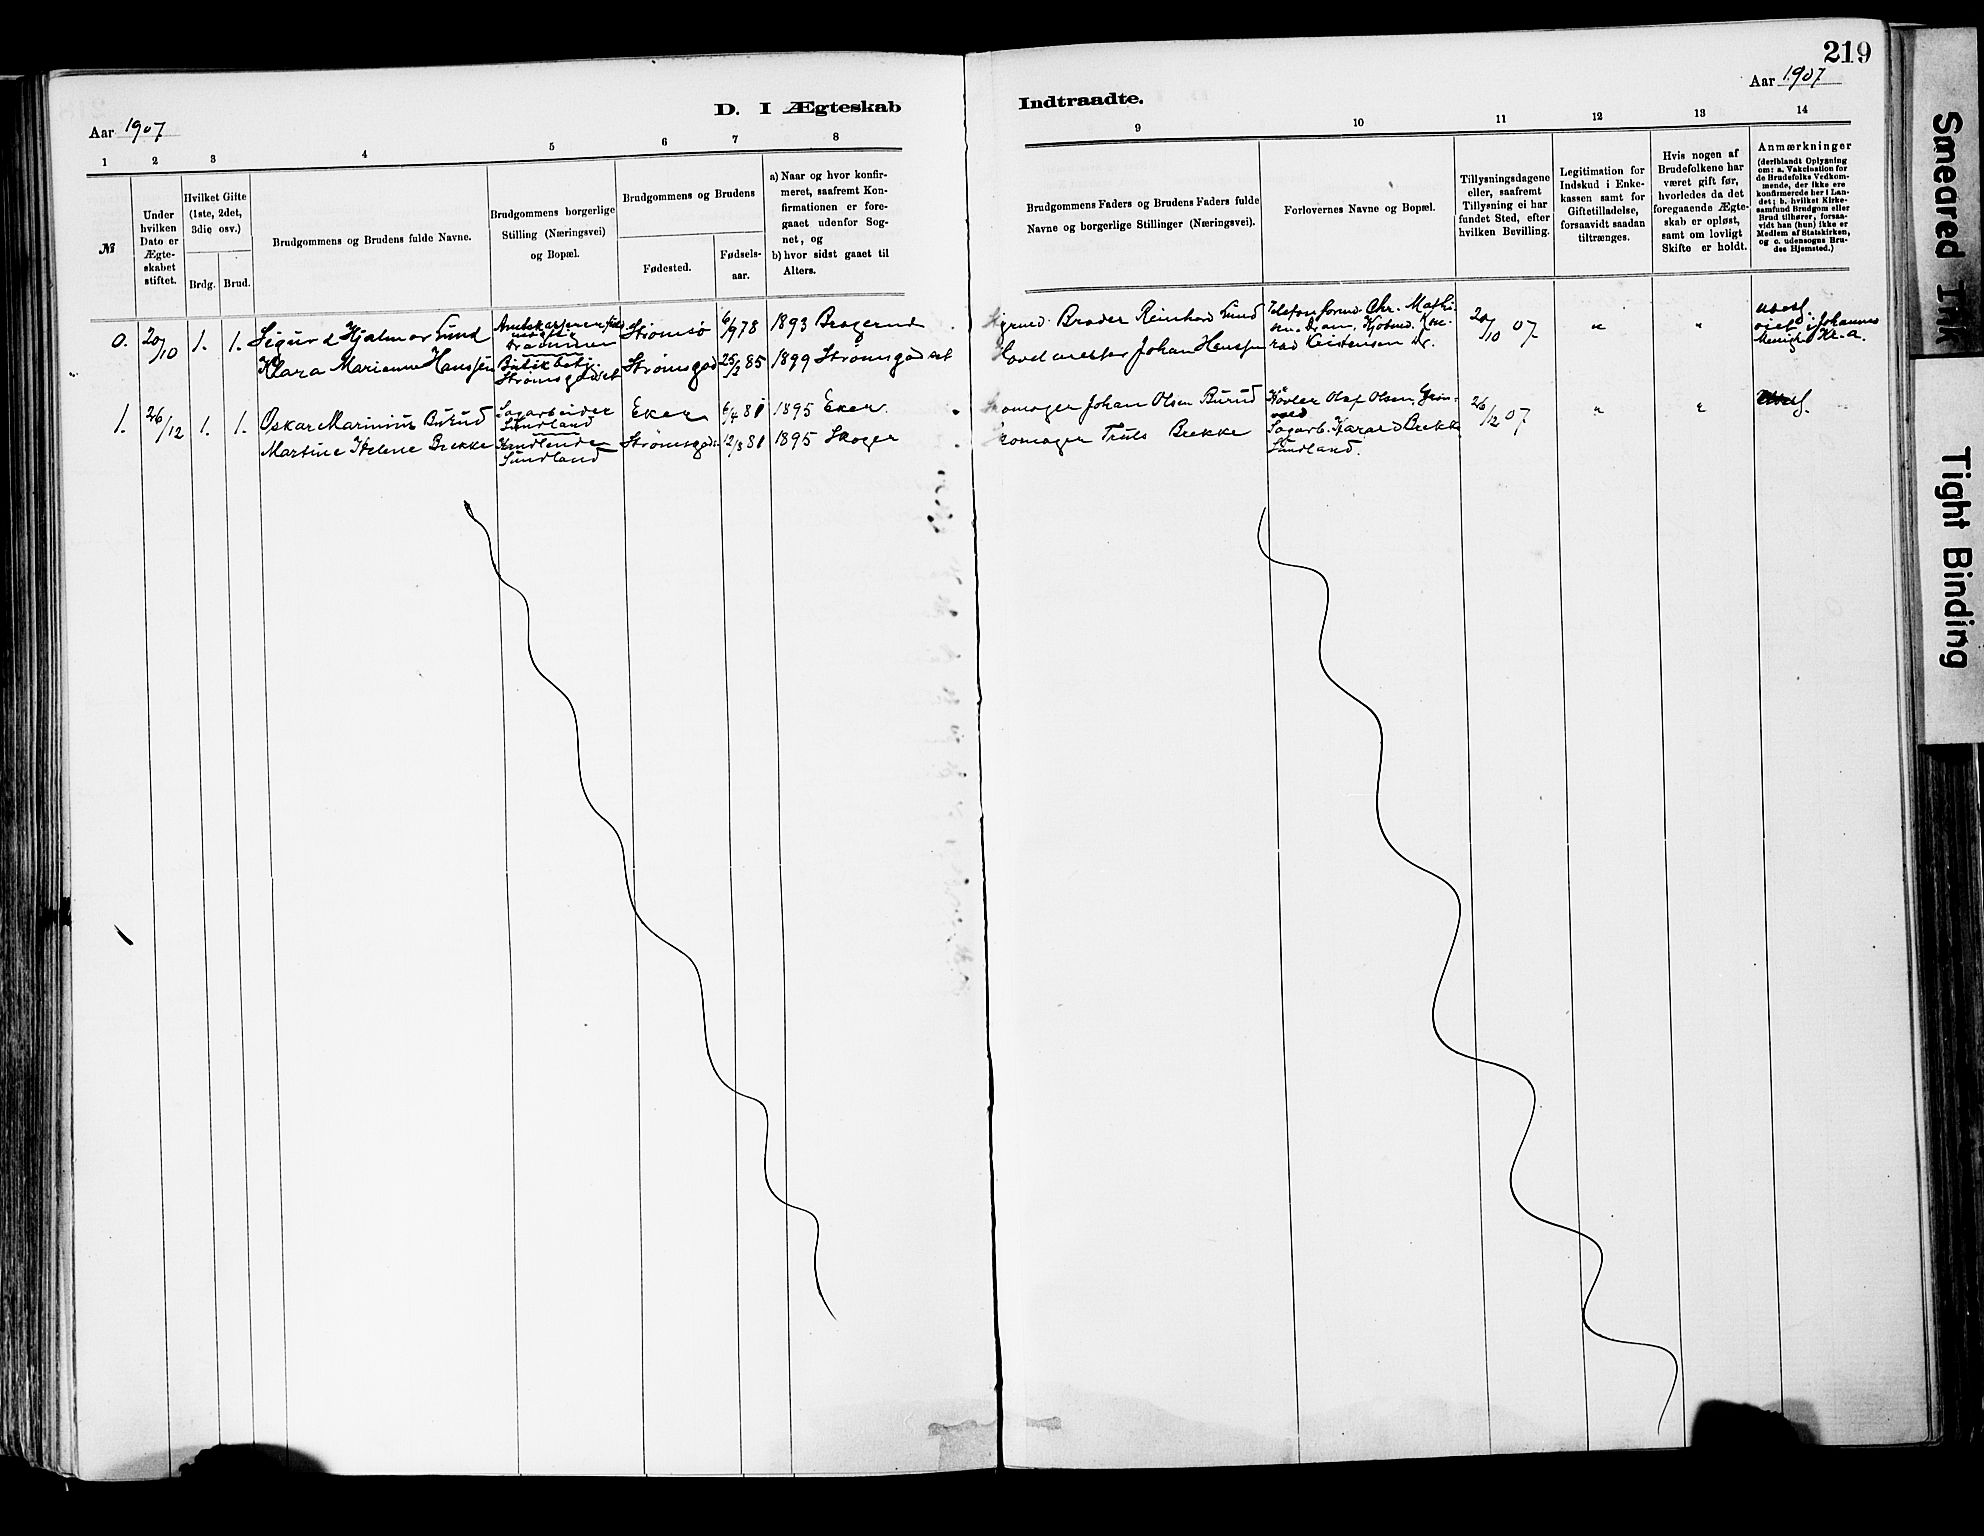 219
Aar 1907
Aar 1907
D. I Ægteskab
Indtraadte.
1 2 3 4 5 6 7 8
9 10 11 12 13 14
№
Under
hvilken
Dato er
Ægte-
skabet
stiftet.
Hvilket Gifte
(1ste, 2det,
3die osv.)
Brdg. Brud.
Brudgommens og Brudens fulde Navne.
Brudgommens borgerlige
Stilling (Næringsvei)
og Bopæl.
Brudgommens og Brudens
Fødested.
Fødsels-
aar.
a) Naar og hvor konfir-
meret, saafremt Kon-
firmationen er fore-
gaaet udenfor Sog-
net, og
b) hvor sidst gaaet til
Alters.
Brudgommens Faders og Brudens Faders fulde
Navne og borgerlige Stillinger (Næringsvei).
Forlovernes Navne og Bopæl.
Tillysningsdagene
eller, saafremt
Tillysning ei har
fundet Sted, efter
hvilken Bevilling.
Legitimation for
Indskud i Enke-
kassen samt for
Giftetilladelse,
forsaavidt saadan
tiltrænges.
Hvis nogen af
Brudefolkene har
været gift før,
hvorledes da det
foregaaende Ægte-
skab er opløst,
samt om lovligt
Skifte er holdt.
Anmærkninger
(deriblandt Oplysning
om: a. Vakcination for
de Brudefolks Vedkom-
mende, der ikke ere
konfirmerede her i Lan-
det; b. hvilket Kirke-
samfund Brudgom eller
Brud tilhører, forsaa-
vidt han (hun) ikke er
Medlem af Statskirken,
og c. udensogns Bru-
des Hjemsted.)
0. 20/10 1. 1. Sigurd Hjalmar Lund
Drammen
Strømsø 6/9 78 1893 Bragernes
Klara Marienne Hanssen
Butikbetj.
Strømsgodset
Strømsgod 25/2 85 1899 Strømsgodset
Brader Reinhard Lund
Johan Hanssen
Telefonform. Chr. Mathi-
sen. Dram. Kjøbmd. Kon-
rad Kristensen Dr.
20/10 07 " "
viet i Johannes
Menigh. Kr.a.
1. 26/12 1. 1. Oskar Marinius Burud
Sagarbeider
Sundland
Eker 6/4 81 1895 Eker.
Martine Helene Brekke
Sundland
Strømsgods. 12/3 81 1895 Skoger
Johan Olsen Burud
Truls Brekke
Høvler Olaf Olsen, Grøn-
vold
Sagarb. Harald Brekke
Sundland.
26/12 07 " "
Smeared Ink
Tight Binding